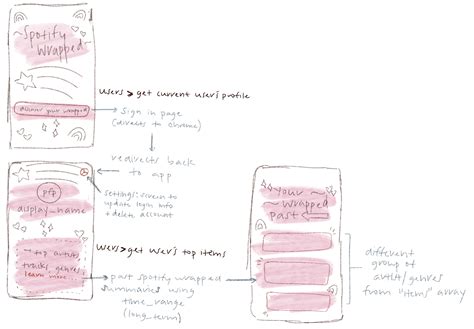 Spotify
wrapped
your wrapped
users > get current user's profile
sign in page
(directs to chrome)
redirects back
to app
settings: screen to
update login info
+ delete account
pfp
display_name
top artists,
tracks, genres
learn more
users > get user's top items
past spotify wrapped
summaries using
time_range
(long_term)
your
wrapped
past
different
group of
artist/genres
from "items" array